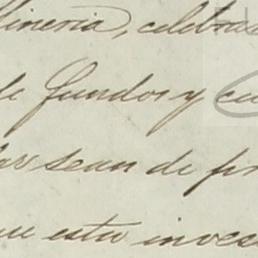 lineria, celebra
de fundos y cu
lar sean de fir
ue esta inves